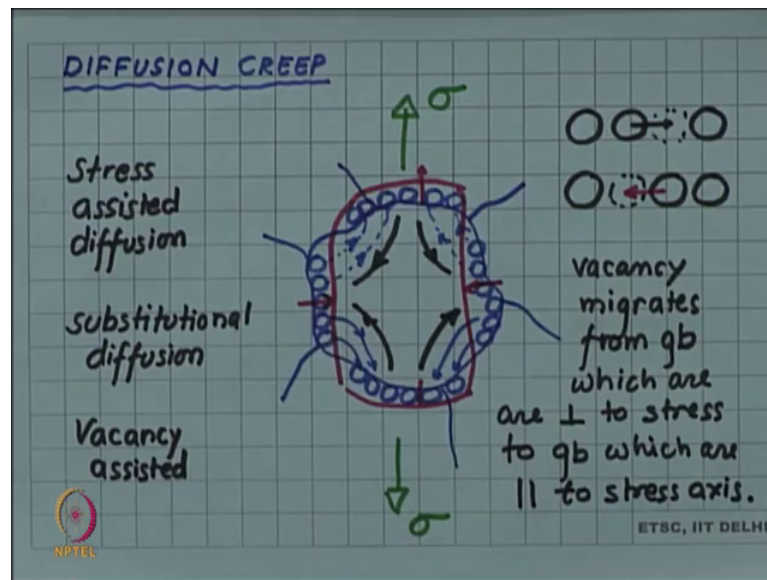 DIFFUSION CREEP
σ
Stress
assisted
diffusion
substitutional
diffusion
Vacancy
assisted
vacancy
migrates
from gb
which are
are ⊥ to stress
to gb which are
|| to stress axis.
σ
ETSC, IIT DELHI
NPTEL